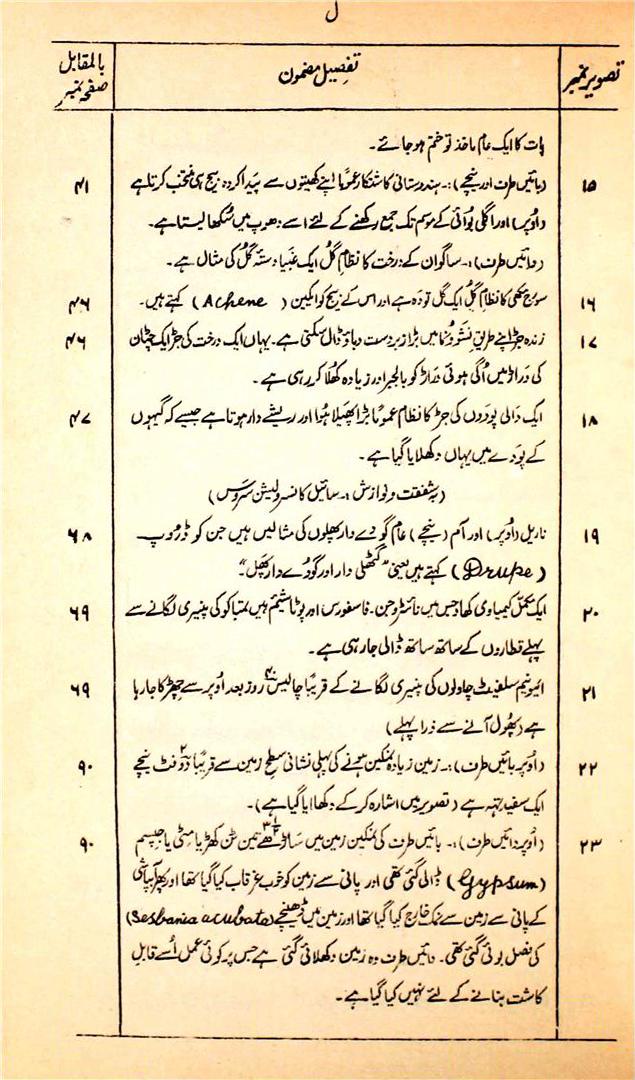 ل
تصویر نمبر	تفصیل مضمون	بالمقابل صفحہ نمبر
بات کا ایک عام ماخذ تو ختم ہو جائے۔
۱۵	(بائیں طرف اور نیچے):۔ ہندوستانی کاشتکار عموماً اپنے کھیتوں سے پیدا کردہ بیج ہی منتخب کرتا ہے	۴۱
(اوپر) اور اگلی بوائی کے موسم تک جمع رکھنے کے لئے اسے دھوپ میں سُکھا لیتا ہے۔
(دائیں طرف):۔ ساگوان کے درخت کا نظامِ گل ایک دستۂ گل کی مثال ہے۔
۱۶	سورج مکھی کا نظامِ گل ایک گل تودہ ہے اور اس کے بیج کو ایکین (Achene) کہتے ہیں۔	۴۶
۱۷	زندہ جڑ اپنے طریقِ نشو و نما میں بڑا زبردست دباؤ ڈال سکتی ہے۔ یہاں ایک درخت کی جڑ ایک چٹان	۴۶
کی دراڑ میں اُگی ہوئی دراڑ کو بالجبر اور زیادہ کھلا کر رہی ہے۔
۱۸	ایک دالی پودوں کی جڑ کا نظام عموماً بڑا پھیلا ہوا اور ریشے دار ہوتا ہے جیسے کہ گیہوں	۴۷
کے پودے میں یہاں دکھلایا گیا ہے۔
(بہ شفقت و نوازش:۔ سائیل کانسرویشن سروس)
۱۹	ناریل (اوپر) اور آم (نیچے) عام گودے دار پھلوں کی مثالیں ہیں جن کو ڈروپ	۶۸
(Drupe) کہتے ہیں یعنی "گٹھلی دار اور گودے دار پھل"۔
۲۰	ایک مکمل کیمیاوی کھاد جس میں نائٹروجن۔ فاسفورس اور پوٹاشیئم ہیں تمباکو کی پنیری لگانے سے	۶۹
پہلے قطاروں کے ساتھ ساتھ ڈالی جا رہی ہے۔
۲۱	ایمونیم سلفیٹ چاولوں کی پنیری لگانے کے قریباً چالیس ۴۰ روز بعد اوپر سے چھڑکا جا رہا	۶۹
ہے (پھول آنے سے ذرا پہلے)
۲۲	(اوپر بائیں طرف):۔ زمین زیادہ نمکین ہونے کی پہلی نشانی سطح زمین سے قریباً دو ۲ فٹ نیچے	۹۰
ایک سفید تہہ ہے (تصویر میں اشارہ کر کے دکھایا گیا ہے)۔
۲۳	(اوپر دائیں طرف):۔ بائیں طرف کی نمکین زمین میں ساڑھے تین ۳½ ٹن کھڑیا مٹی یا جپسم	۹۰
(Gypsum) ڈالی گئی تھی اور پانی سے زمین کو خوب غرقاب کیا گیا تھا اور پھر آبپاشی
کے پانی سے زمین سے نمک خارج کیا گیا تھا اور زمین میں ڈھینچے (Sesbania acubate)
کی فصل بوئی گئی تھی۔ دائیں طرف وہ زمین دکھلائی گئی ہے جس پر کوئی عمل اُسے قابلِ
کاشت بنانے کے لئے نہیں کیا گیا ہے۔